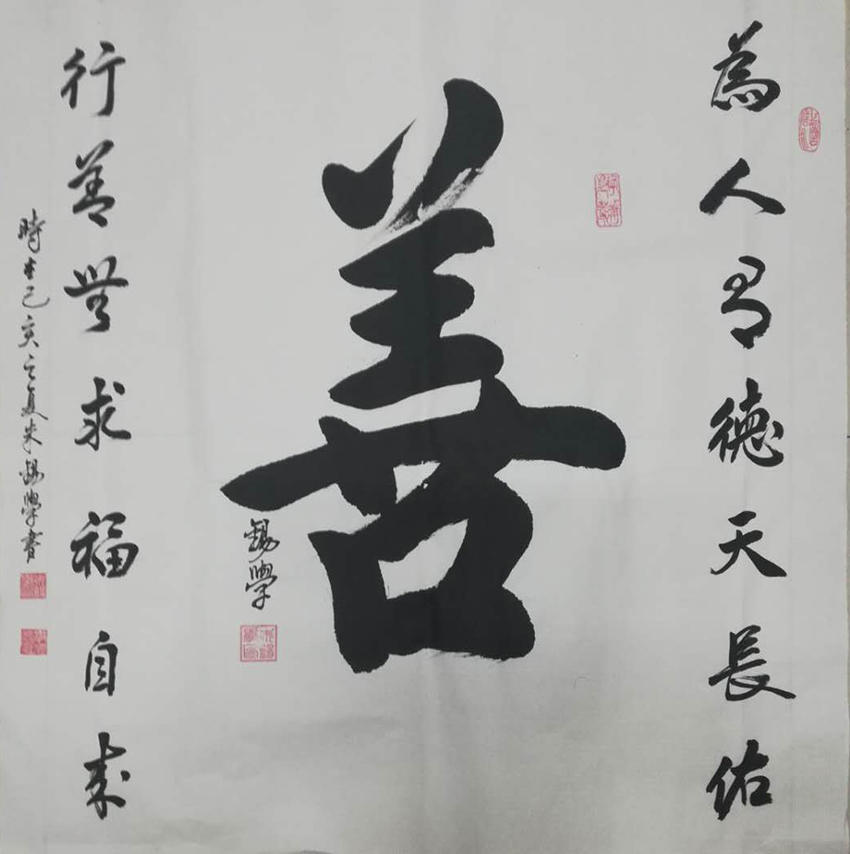 為人有德天長佑
善
錫學
行善無求福自来
時在己亥之夏朱錫學書